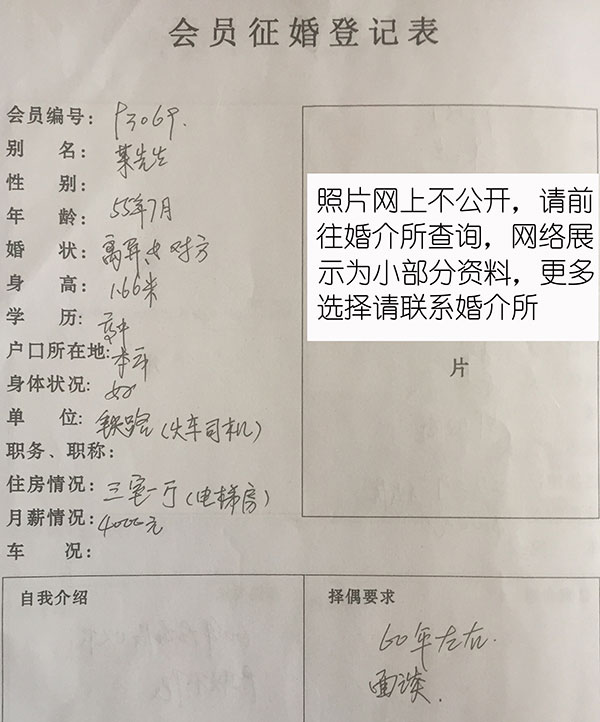 会员征婚登记表
会员编号: P3069.
别 名: 某先生
性 别:
年 龄: 55年7月
婚 状: 离异女对方
身 高: 1.66米
学 历: 高中
户口所在地: 本市
身体状况: 好
单 位: 铁路(火车司机)
职务、职称:
住房情况: 三室一厅(电梯房)
月薪情况: 4000元
车 况:
照片网上不公开，请前
往婚介所查询，网络展
示为小部分资料，更多
选择请联系婚介所
片
自我介绍
择偶要求
60年左右.
面谈.